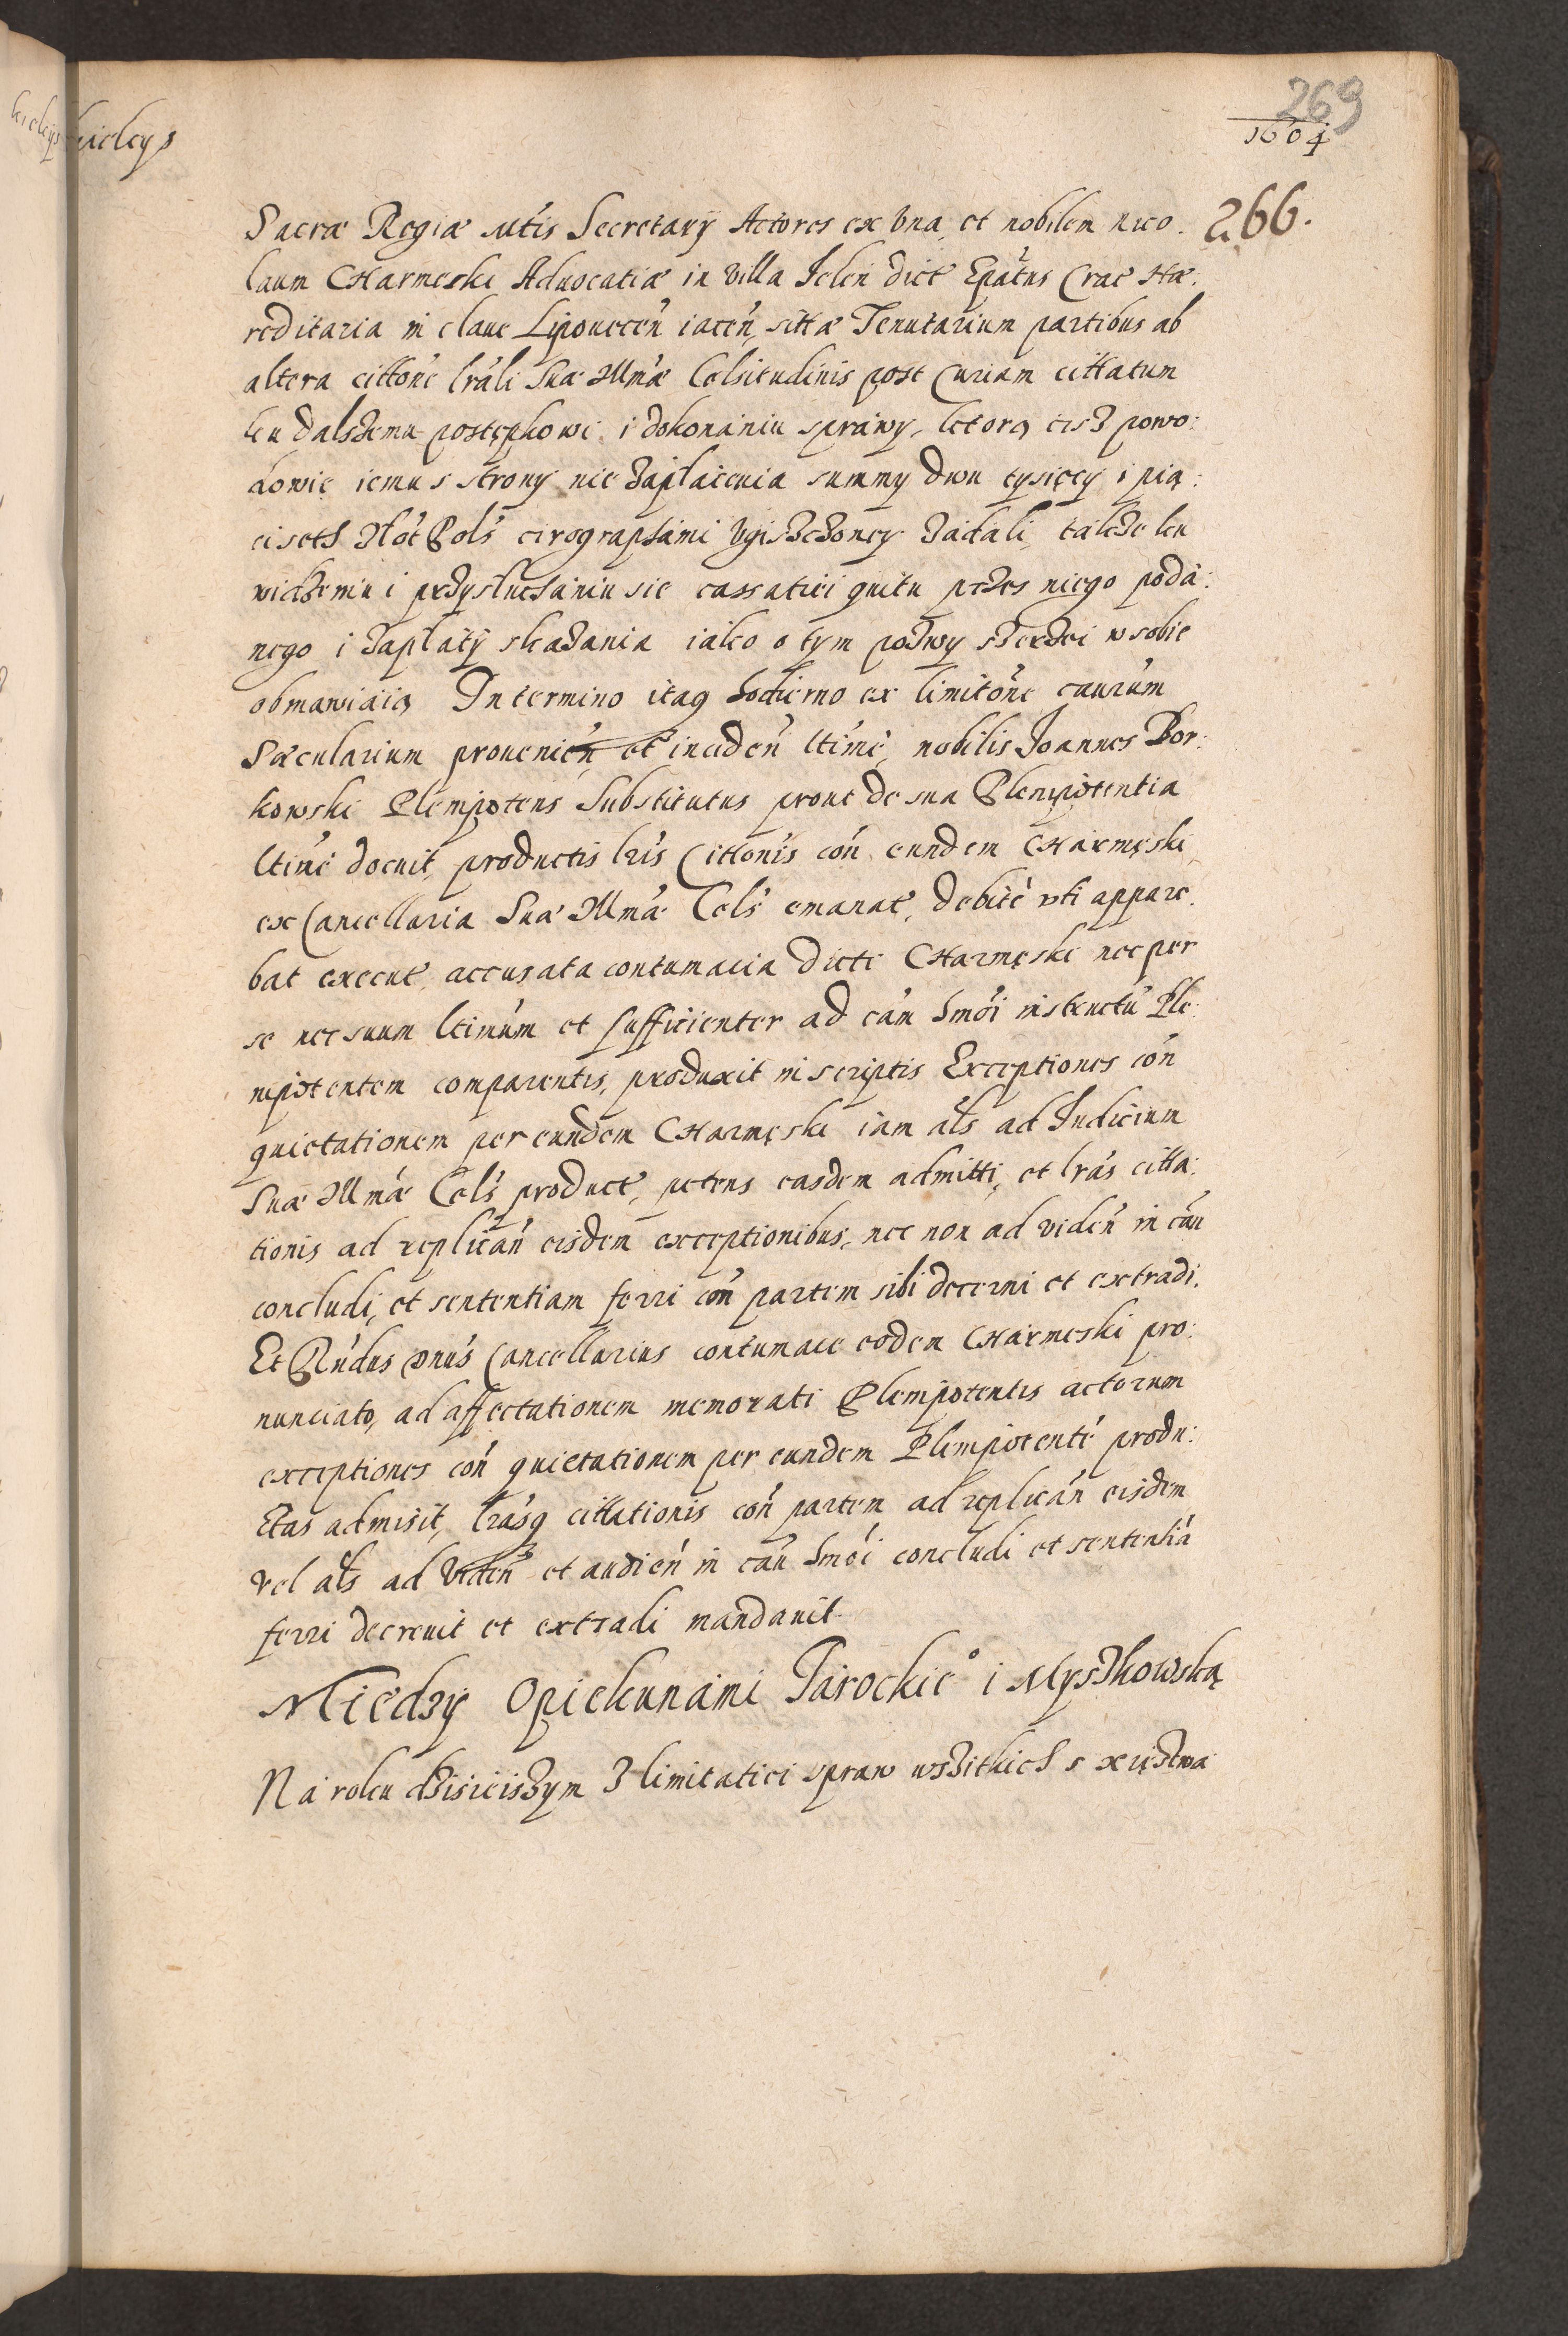 269
1604
266.
Sacræ Regiæ Mtis Secretarÿ Actores ex vna, et nobilem Nico:
laum CHarmeski Aduocatiæ in villa Jelen dict Epatus Crac Hæ:
reditaria in claue Lipouecen iacen, sittæ Tenutarium partibus ab
altera cittone lrali Suæ Illmæ Celsitudinis post Curiam cittatum
ku dalszemu postępkowi i dokonániu spráwy, ktorą cisz powo:
dowie iemu s strony nie záplácenia summy dwu tysięcy i pią:
ciseth Złot Pols cirographámi vgiszczoney zádáli, tákze ku
widzeniu i przysłuchániu sie cassatiei quitu przes niego podá:
nego i zapłáty skazánia iáko o tym pozwy szerzei w sobie
obmawiáią In termino itaq hodierno ex limitone causarum
Sæcularium prouenien, et inciden ltime, nobilis Joannes Bor:
kowski Plenipotens Substitutus prout de sua Plenipotentia
ltime docuit, productis lris Cittonis con eundem CHarmęski
ex Cancellaria Suæ Illmæ Cels emanat, debitè vti appare:
bat execut, accusata contumacia dicti CHarmęski nec per
se nec suum ltimum et sufficienter ad cau hmoi instructu Ple:
nipotentem comparentis, produxit in scriptis Exceptiones con
quietationem per eundem CHarmęski iam als ad Judicium
Suæ Illmæ Cels product, petens easdem admitti, et lras citta:
tionis ad replican eisdem exceptionibus, nec non ad viden in cau
concludi, et sententiam ferri con partem sibi decerni et extradi.
Et Rndus Dnus Cancellarius contumace eodem CHarmeski pro:
nunciato, ad affectationem memorati Plenipotentis actorum
exceptiones con quietationem per eundem Plenipotente produ:
ctas admisit, lrasq cittationis con partem ad replican eisdem
vel als ad viden et audien in cau hmoi concludi et sententia
ferri decreuit et extradi mandauit.
Miedzÿ Opiekunámi Járockic° i Myszkowską
Ná roku dzisieiszym z limitatiei spraw wszitkich s xięstwa